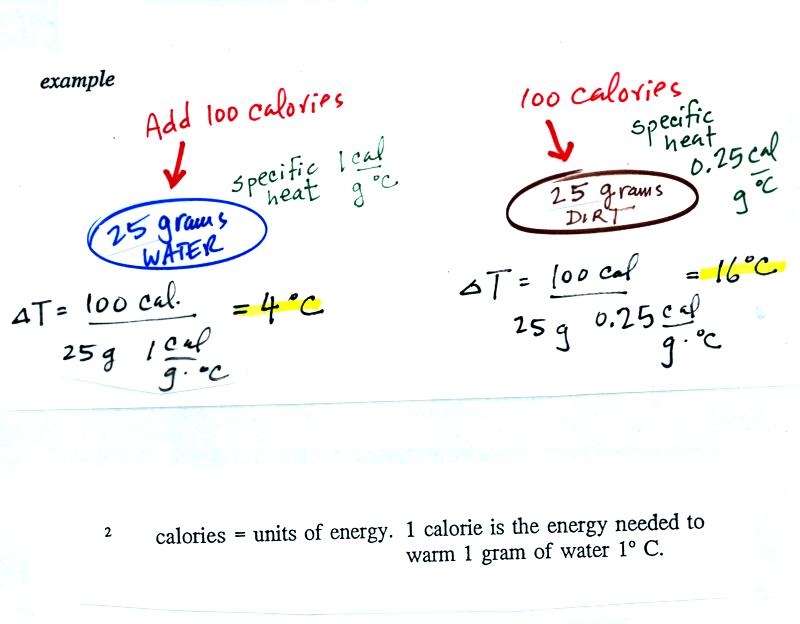 example
Add 100 calories
specific heat 1 cal
g °C
25 grams
WATER
ΔT = 100 cal. = 4 °C
25 g 1 cal
g · °C
100 calories
specific
heat
0.25 cal
g °C
25 grams
DIRT
ΔT = 100 cal = 16 °C
25 g 0.25 cal
g · °C
2 calories = units of energy. 1 calorie is the energy needed to
warm 1 gram of water 1° C.